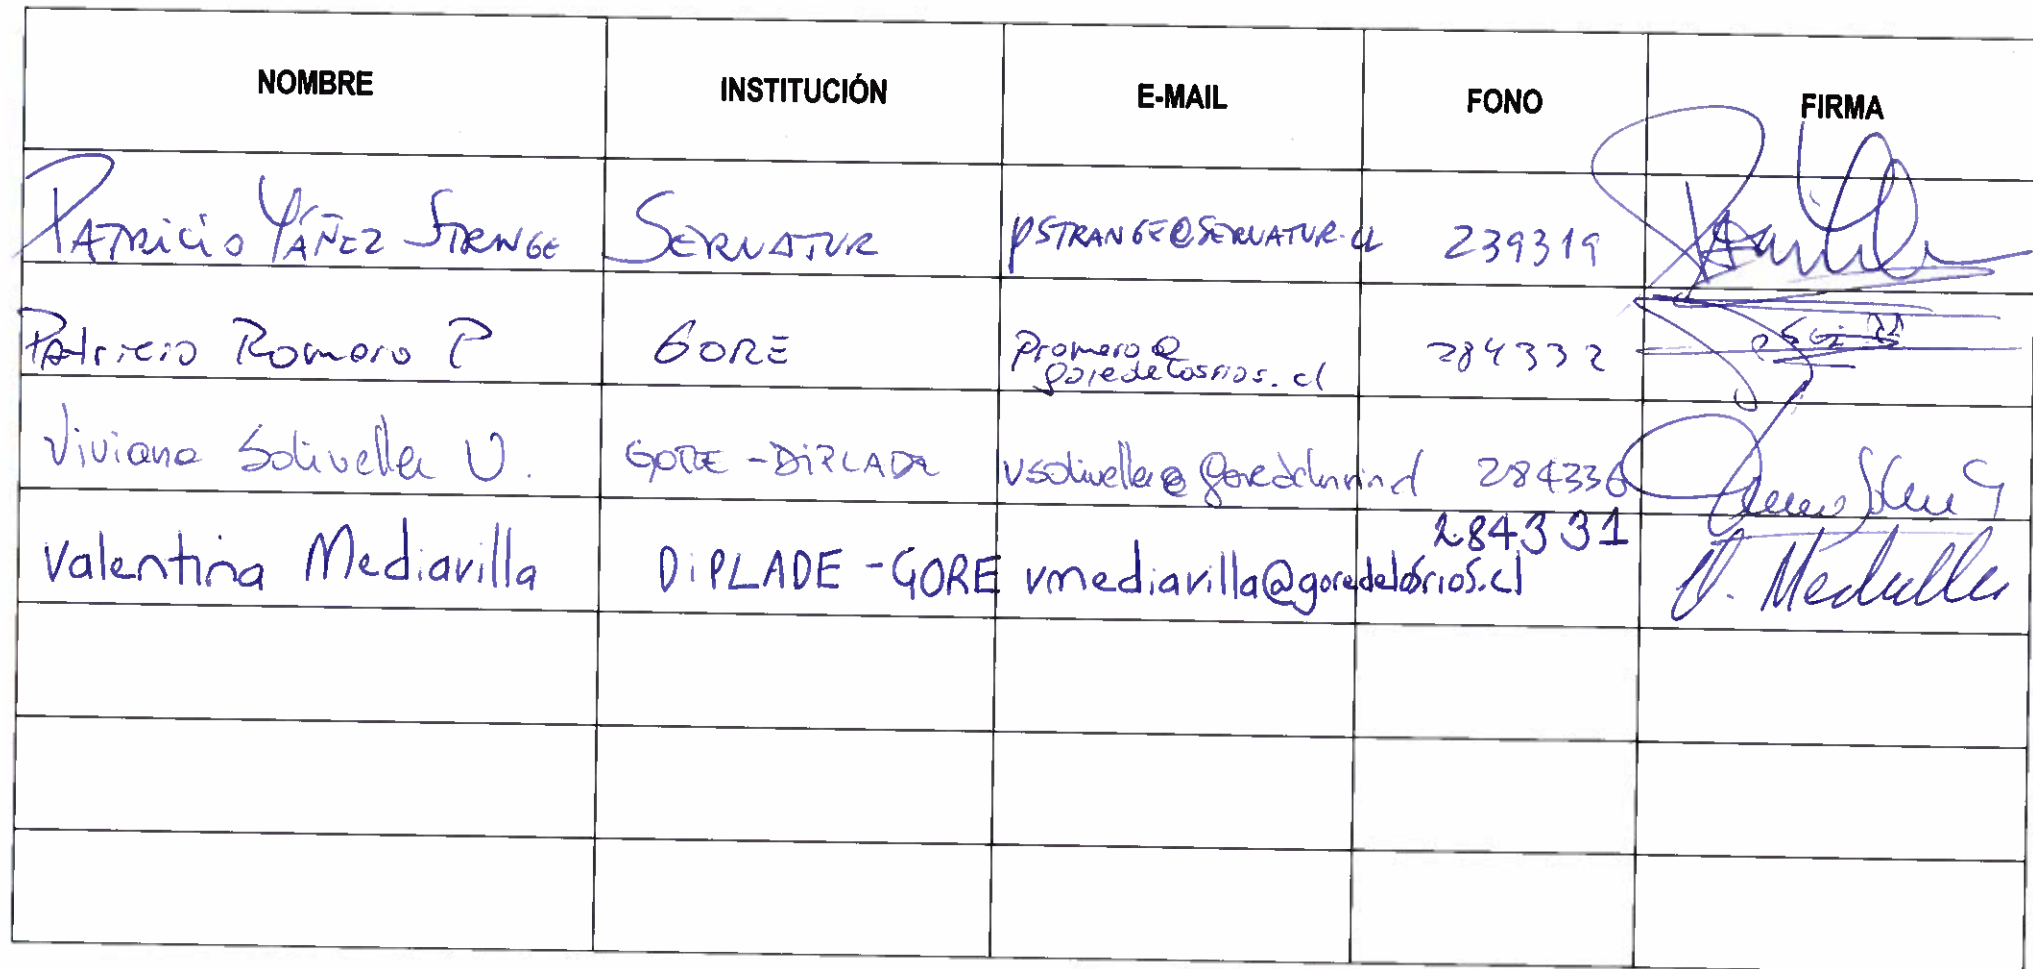 NOMBRE INSTITUCIÓN E-MAIL FONO FIRMA
PATRICIO YÁÑEZ STRANGE SERNATUR PSTRANGE@SERNATUR.CL 239319
Patricio Romero P GORE Promero@
goredelosrios.cl 284332
Viviana Solivella U. GORE - DIPLADE vsolivella@ 284336
Valentina Mediavilla DiPLADE - GORE vmediavilla@goredelosrios.cl 284331 V.